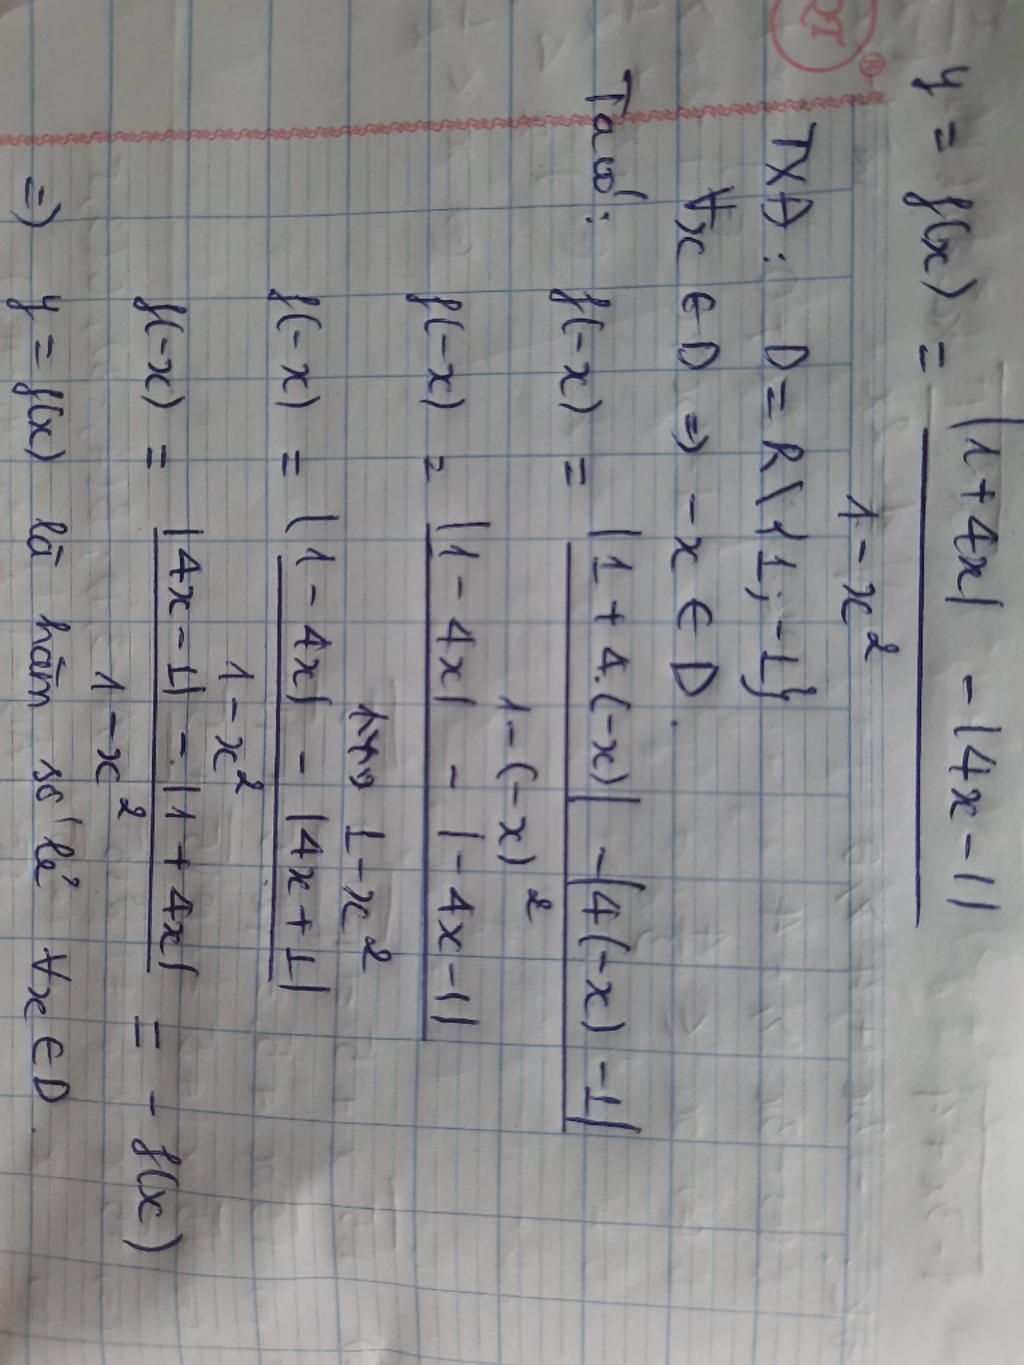 y = f(x) = |1+4x| - |4x-1|
1-x²
TXĐ: D = R\{1; -1}
∀x ∈ D => -x ∈ D.
Ta có: f(-x) = |1+4.(-x)| - |4(-x)-1|
1-(-x)²
f(-x) = |1-4x| - |-4x-1|
1-x²
f(-x) = |1-4x| - |4x+1|
1-x²
f(-x) = |4x-1| - |1+4x| = - f(x)
1-x²
=> y = f(x) là hàm số lẻ ∀x ∈ D.